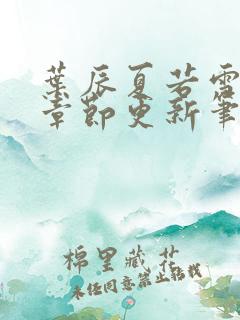 葉辰夏若雪
章節更新筆
棉里藏花
未经同意禁止转载